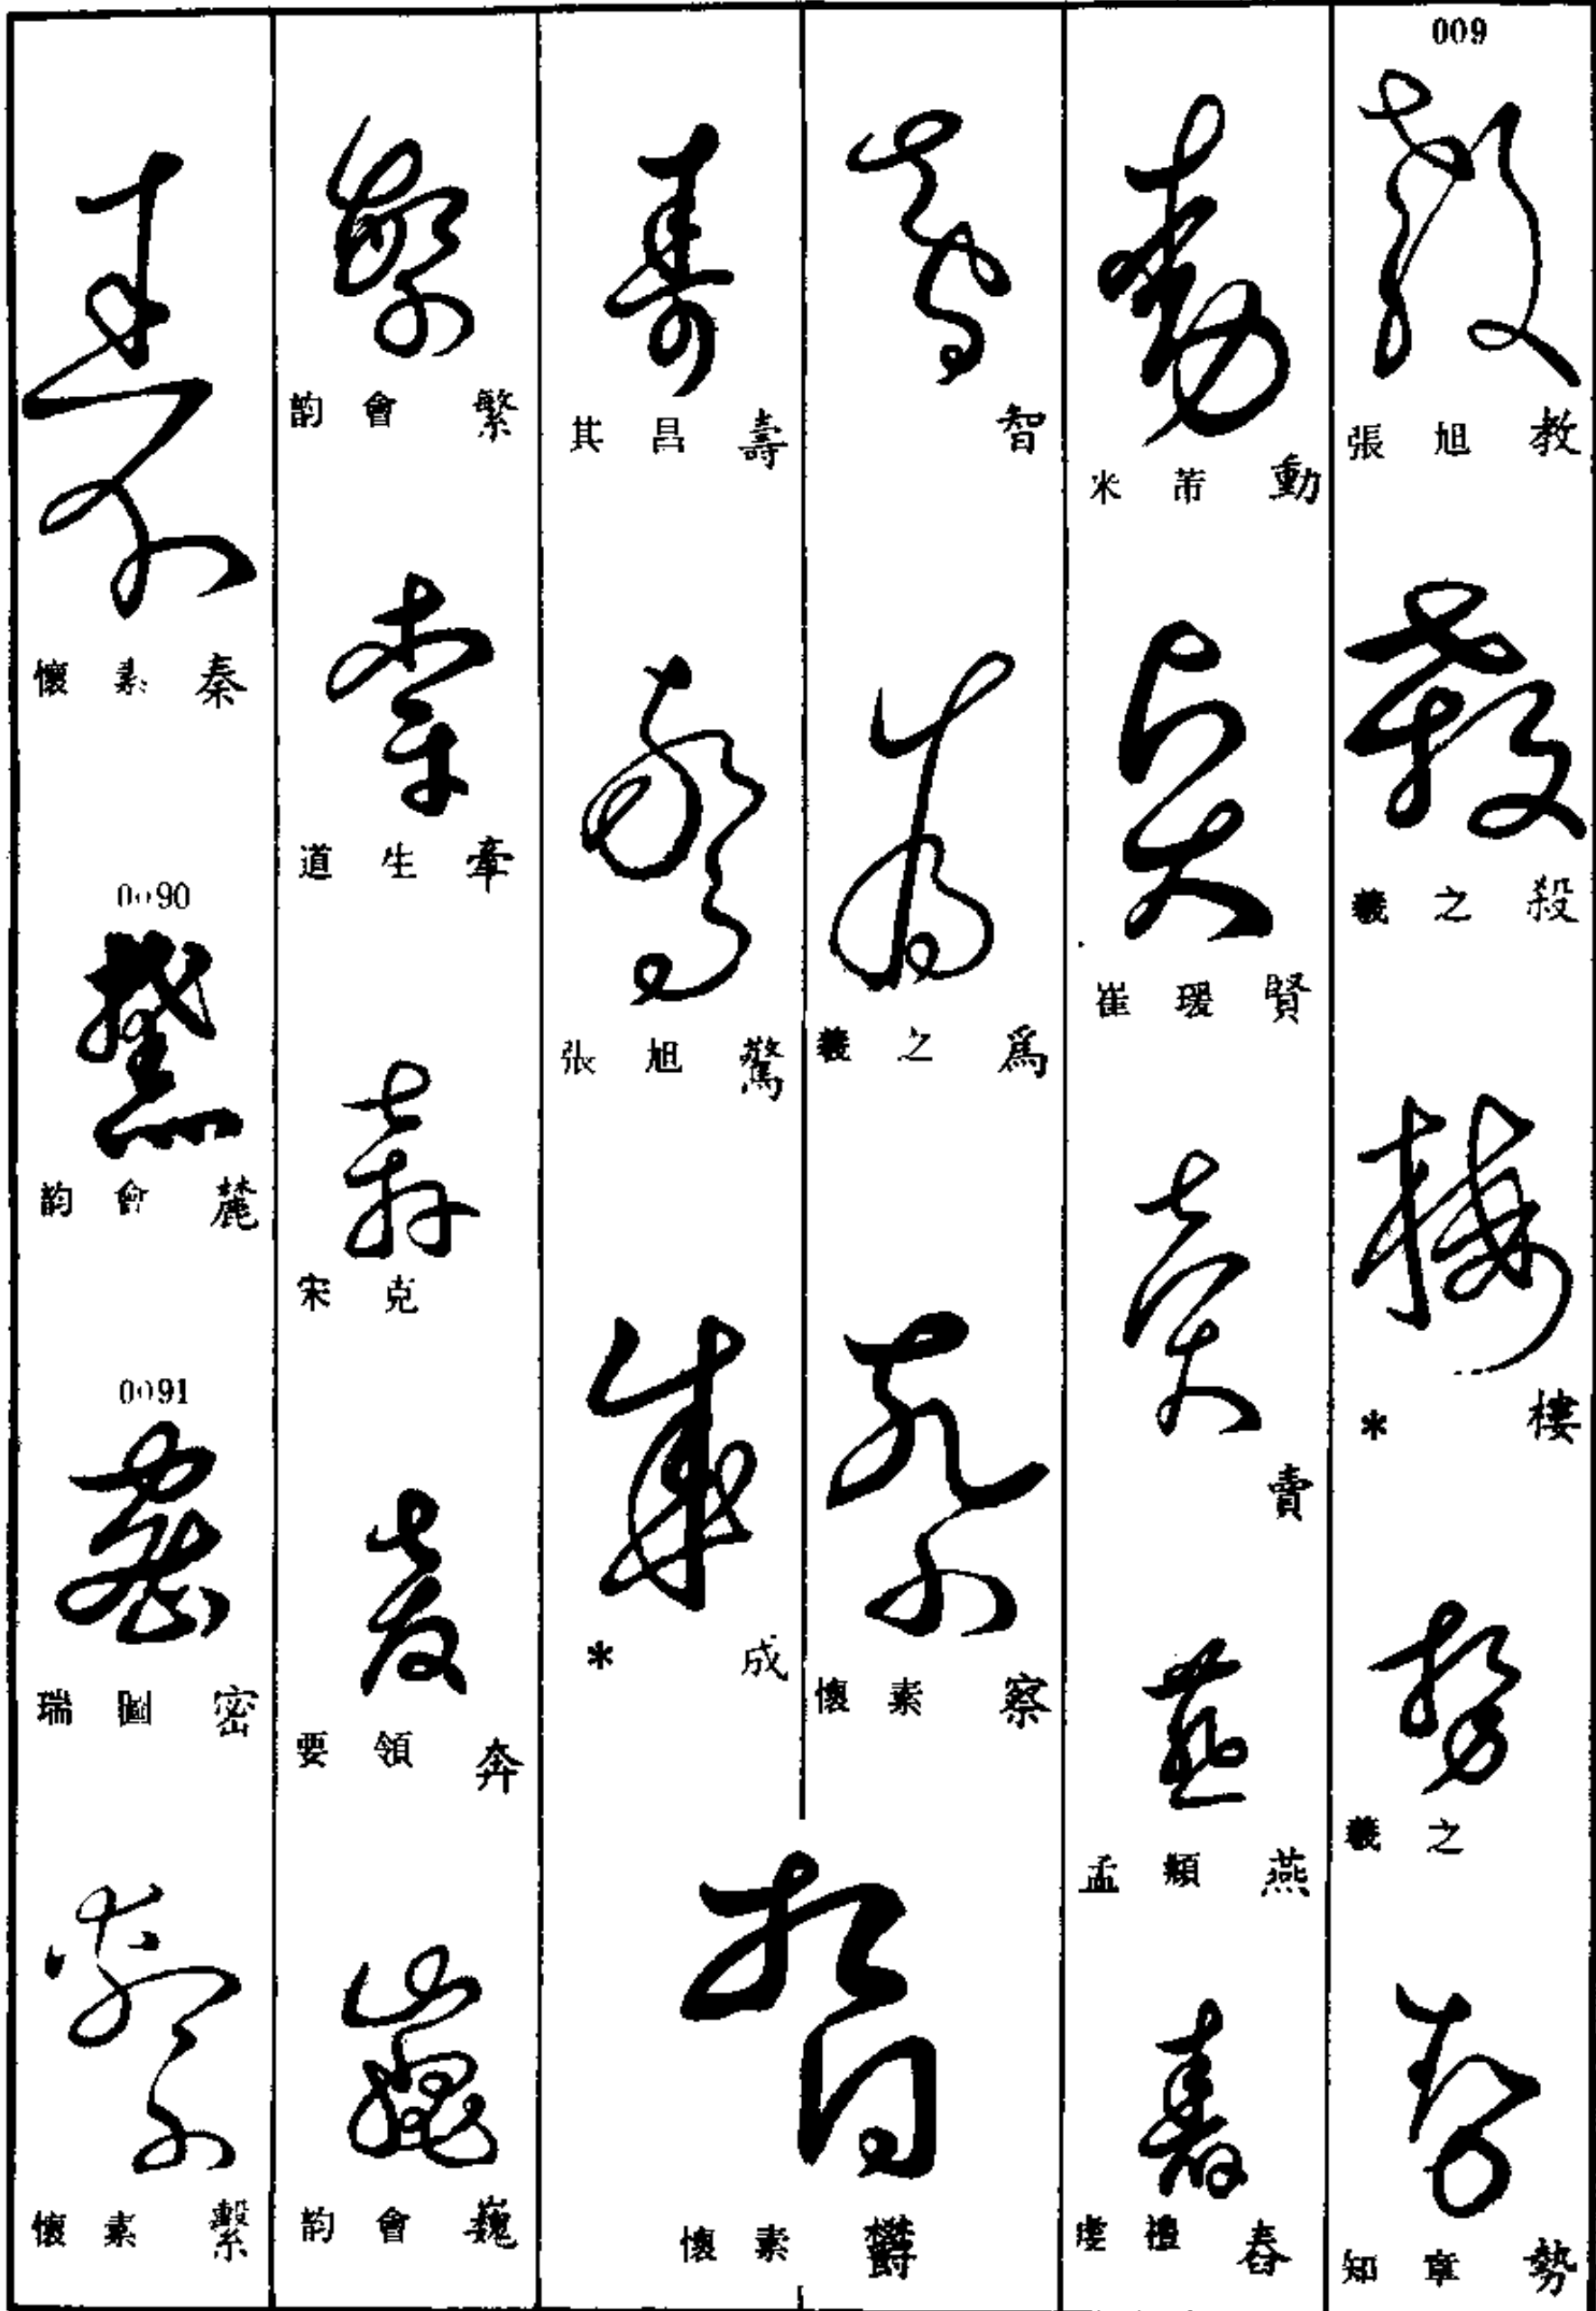 009
教 張旭
殺 羲之
樓 *
羲之
勢 知章
動 米芾
賢 崔瑗
賣
燕 孟頫
春 虔禮
智
為 羲之
察 懷素
欝 懷素
壽 其昌
驚 張旭
成 *
繁 韵會
牽 道生
宋克
奔 要領
巍 韵會
秦 懷素
0090
麓 韵會
0091
密 瑞圖
繫 懷素